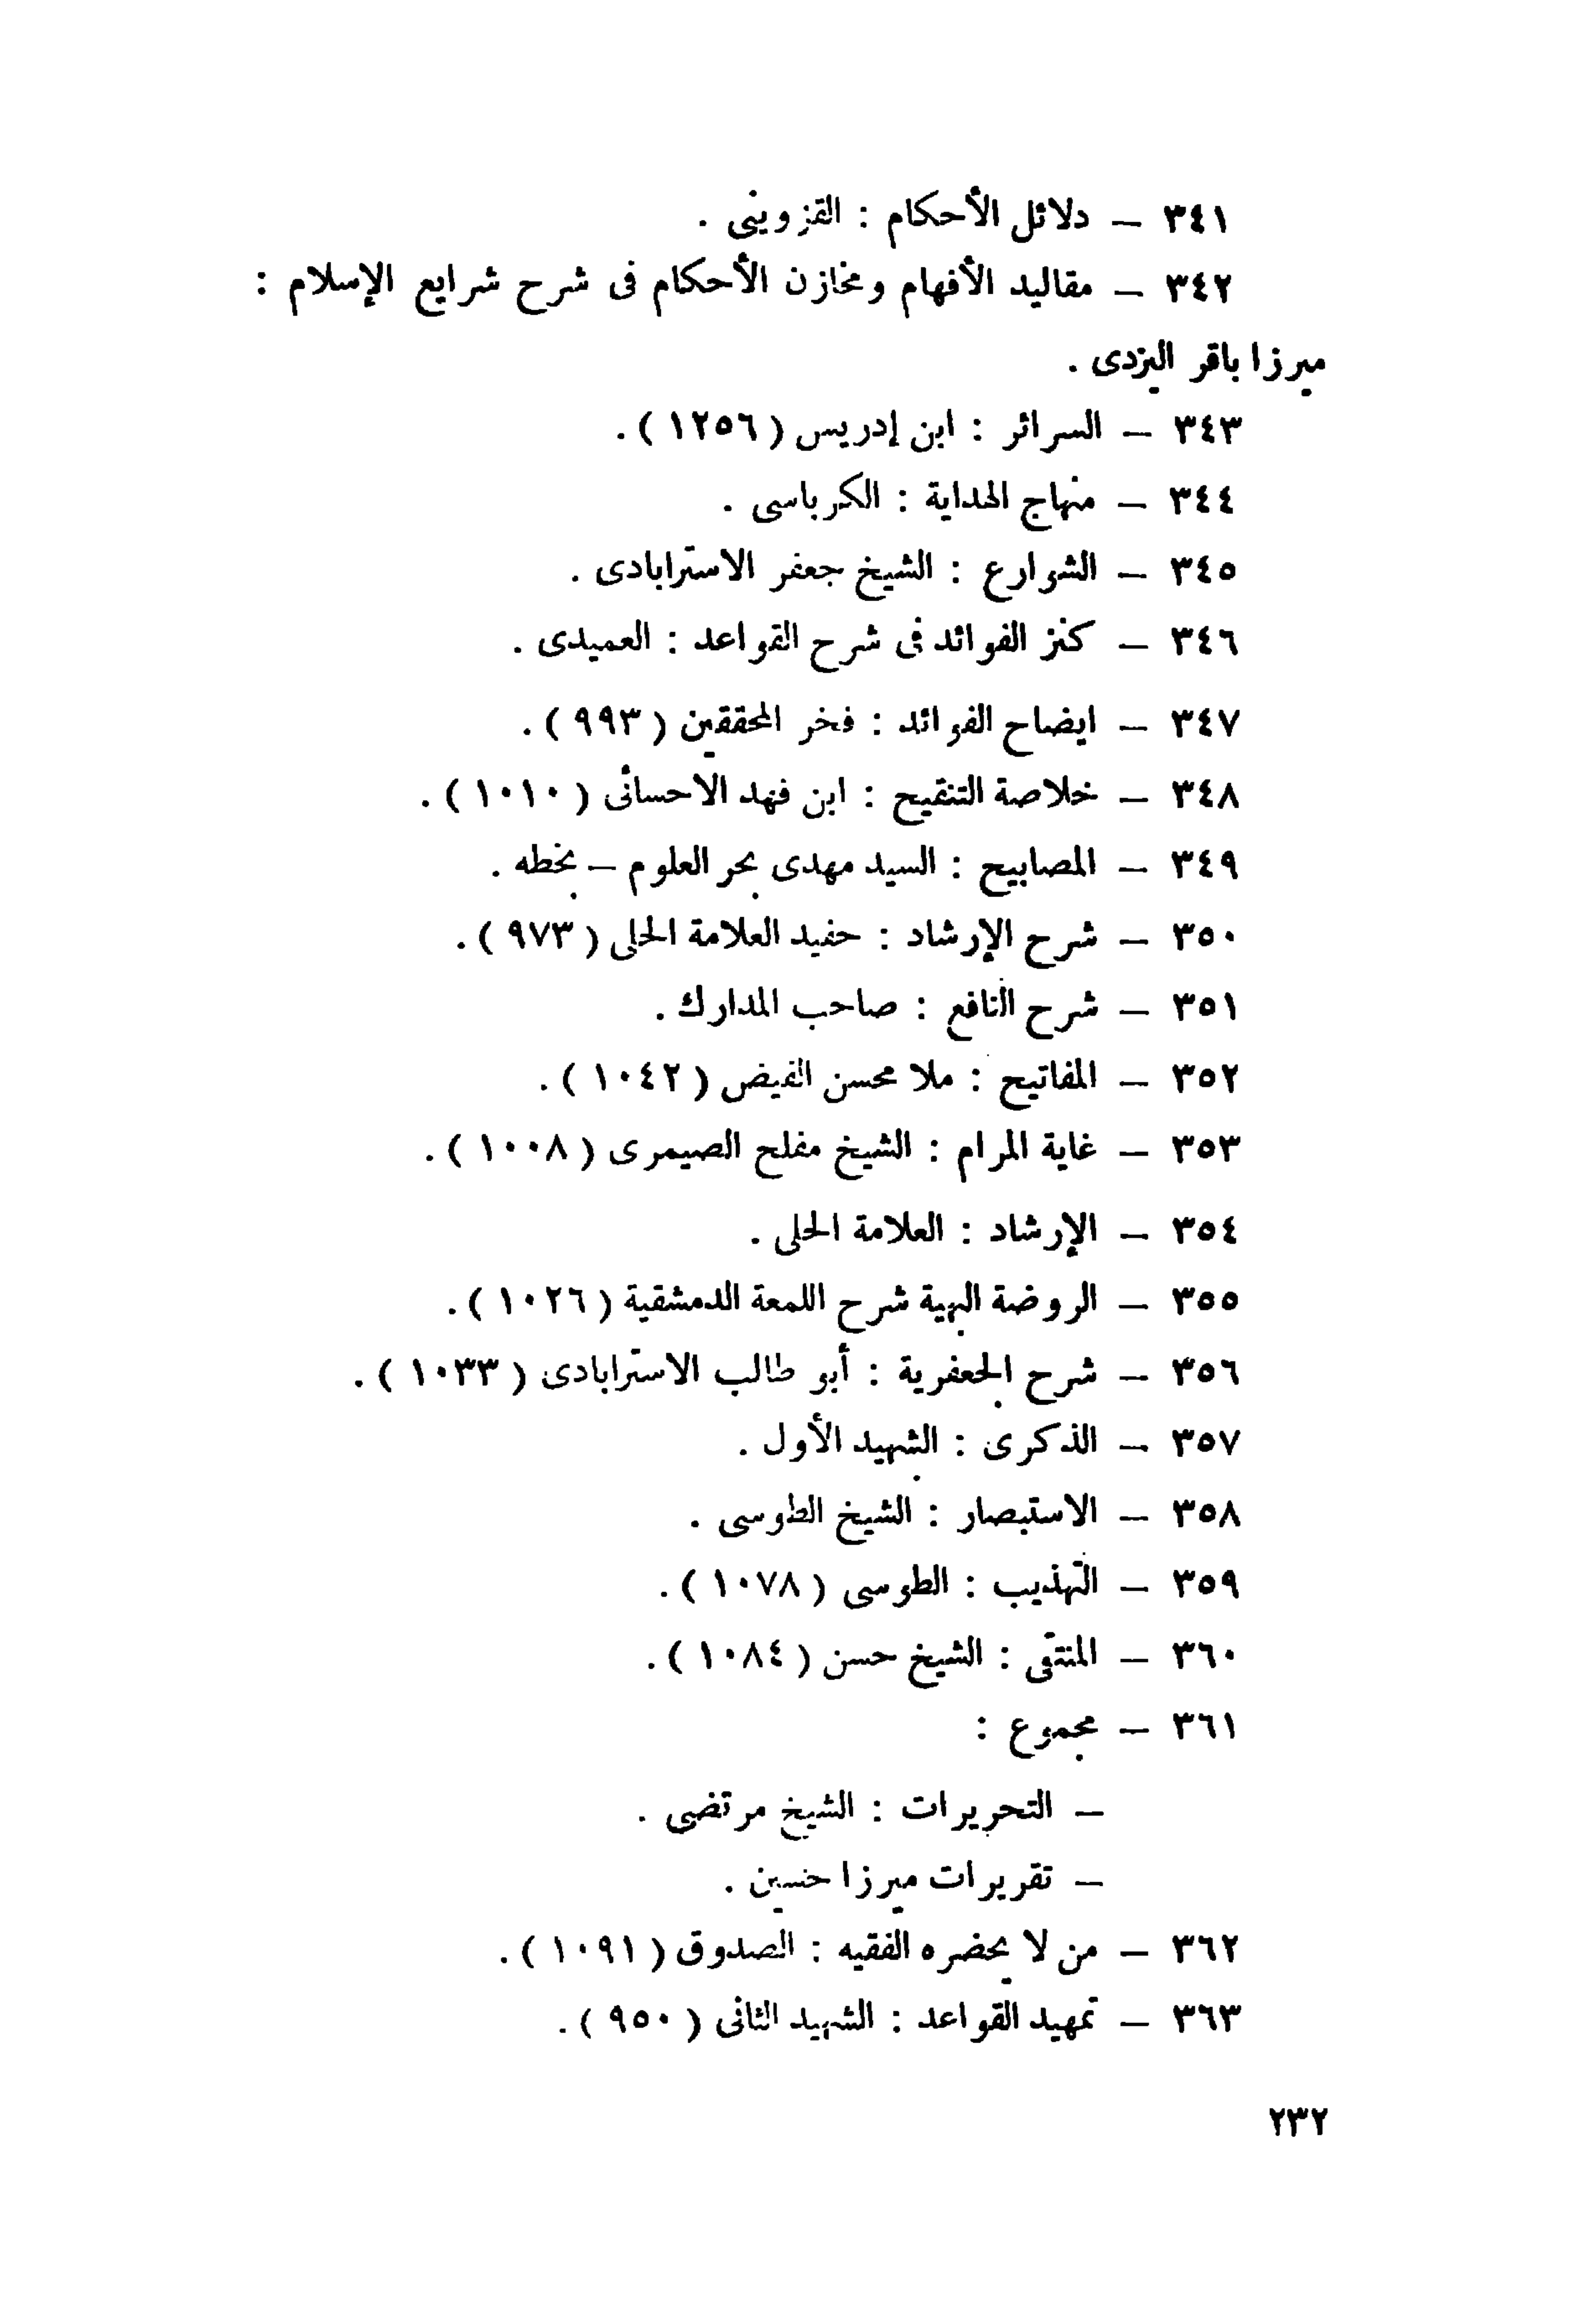 ٣٤١ — دلائل الأحكام : القزوينى .
٣٤٢ — مقاليد الأفهام ومخازن الأحكام فى شرح شرايع الإسلام :
ميرزا باقر اليزدى .
٣٤٣ — السرائر : ابن إدريس ( ١٢٥٦ ) .
٣٤٤ — منهاج الهداية : الكرباسى .
٣٤٥ — الشوارع : الشيخ جعفر الاسترابادى .
٣٤٦ — كنز الفوائد فى شرح القواعد : العميدى .
٣٤٧ — ايضاح الفوائد : فخر المحققين ( ٩٩٣ ) .
٣٤٨ — خلاصة التنقيح : ابن فهد الاحسائى ( ١٠١٠ ) .
٣٤٩ — المصابيح : السيد مهدى بحر العلوم — بخطه .
٣٥٠ — شرح الإرشاد : حفيد العلامة الحلى ( ٩٧٣ ) .
٣٥١ — شرح النافع : صاحب المدارك .
٣٥٢ — المفاتيح : ملا محسن الفيض ( ١٠٤٢ ) .
٣٥٣ — غاية المرام : الشيخ مفلح الصيمرى ( ١٠٠٨ ) .
٣٥٤ — الإرشاد : العلامة الحلى .
٣٥٥ — الروضة البهية شرح اللمعة الدمشقية ( ١٠٢٦ ) .
٣٥٦ — شرح الجعفرية : أبو طالب الاسترابادى ( ١٠٣٣ ) .
٣٥٧ — الذكرى : الشهيد الأول .
٣٥٨ — الاستبصار : الشيخ الطوسى .
٣٥٩ — التهذيب : الطوسى ( ١٠٧٨ ) .
٣٦٠ — المنتقى : الشيخ حسن ( ١٠٨٤ ) .
٣٦١ — مجموع :
— التحريرات : الشيخ مرتضى .
— تقريرات ميرزا حسين .
٣٦٢ — من لا يحضره الفقيه : الصدوق ( ١٠٩١ ) .
٣٦٣ — تمهيد القواعد : الشهيد الثانى ( ٩٥٠ ) .
٢٣٢